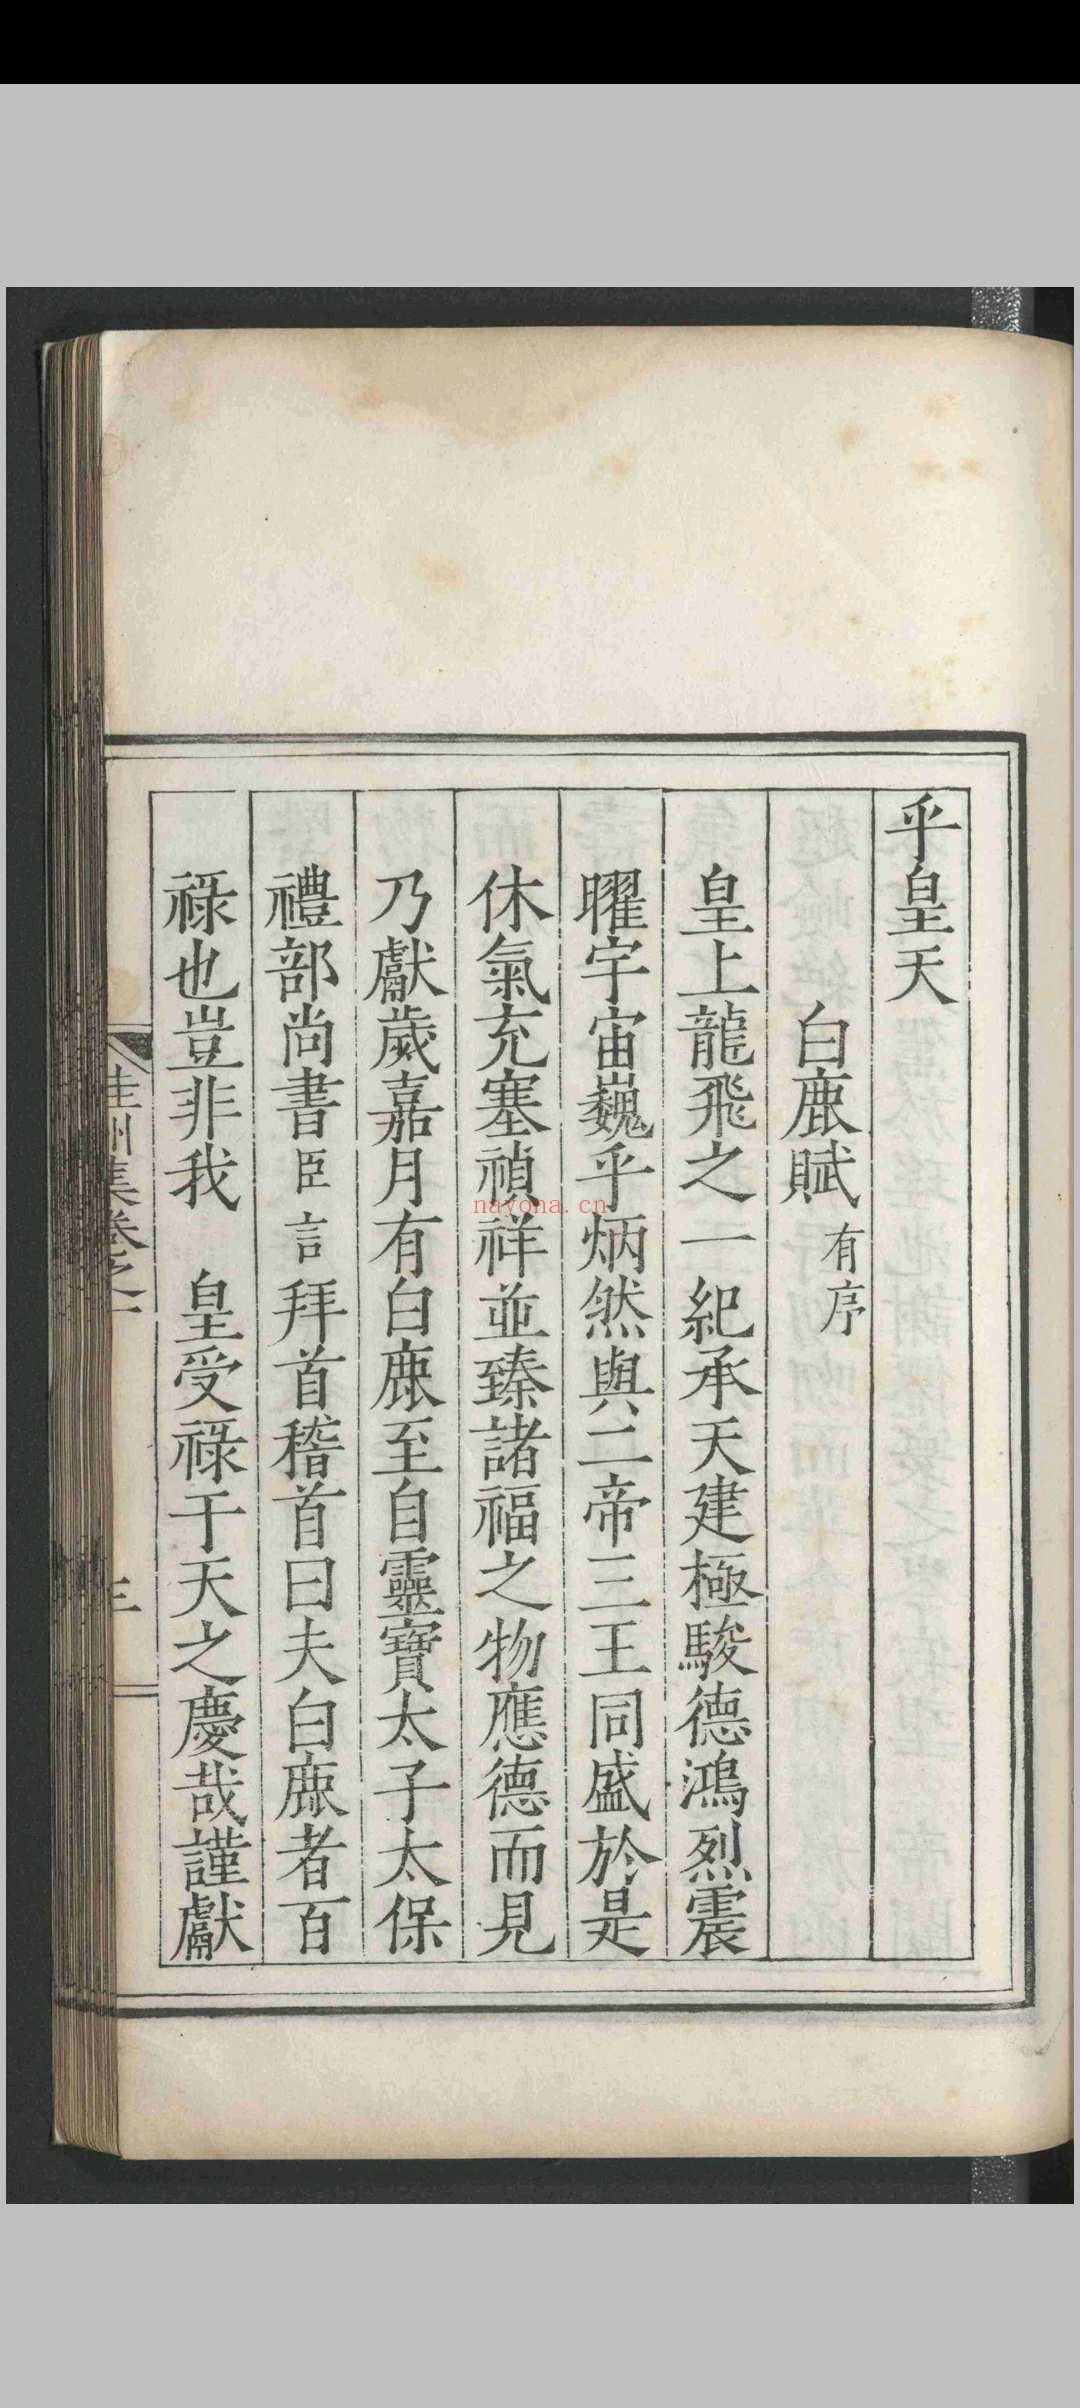 乎皇天
白鹿賦有序
皇上龍飛之一紀承天建極駿德鴻烈震
曜宇宙巍乎炳然與二帝三王同盛於是
休氣充塞禎祥並臻諸福之物應德而見
乃獻歲嘉月有白鹿至自靈寶太子太保
禮部尚書臣言拜首稽首曰夫白鹿者百
祿也豈非我 皇受祿于天之慶哉謹獻
桂洲集卷之一
三
nayona.cn